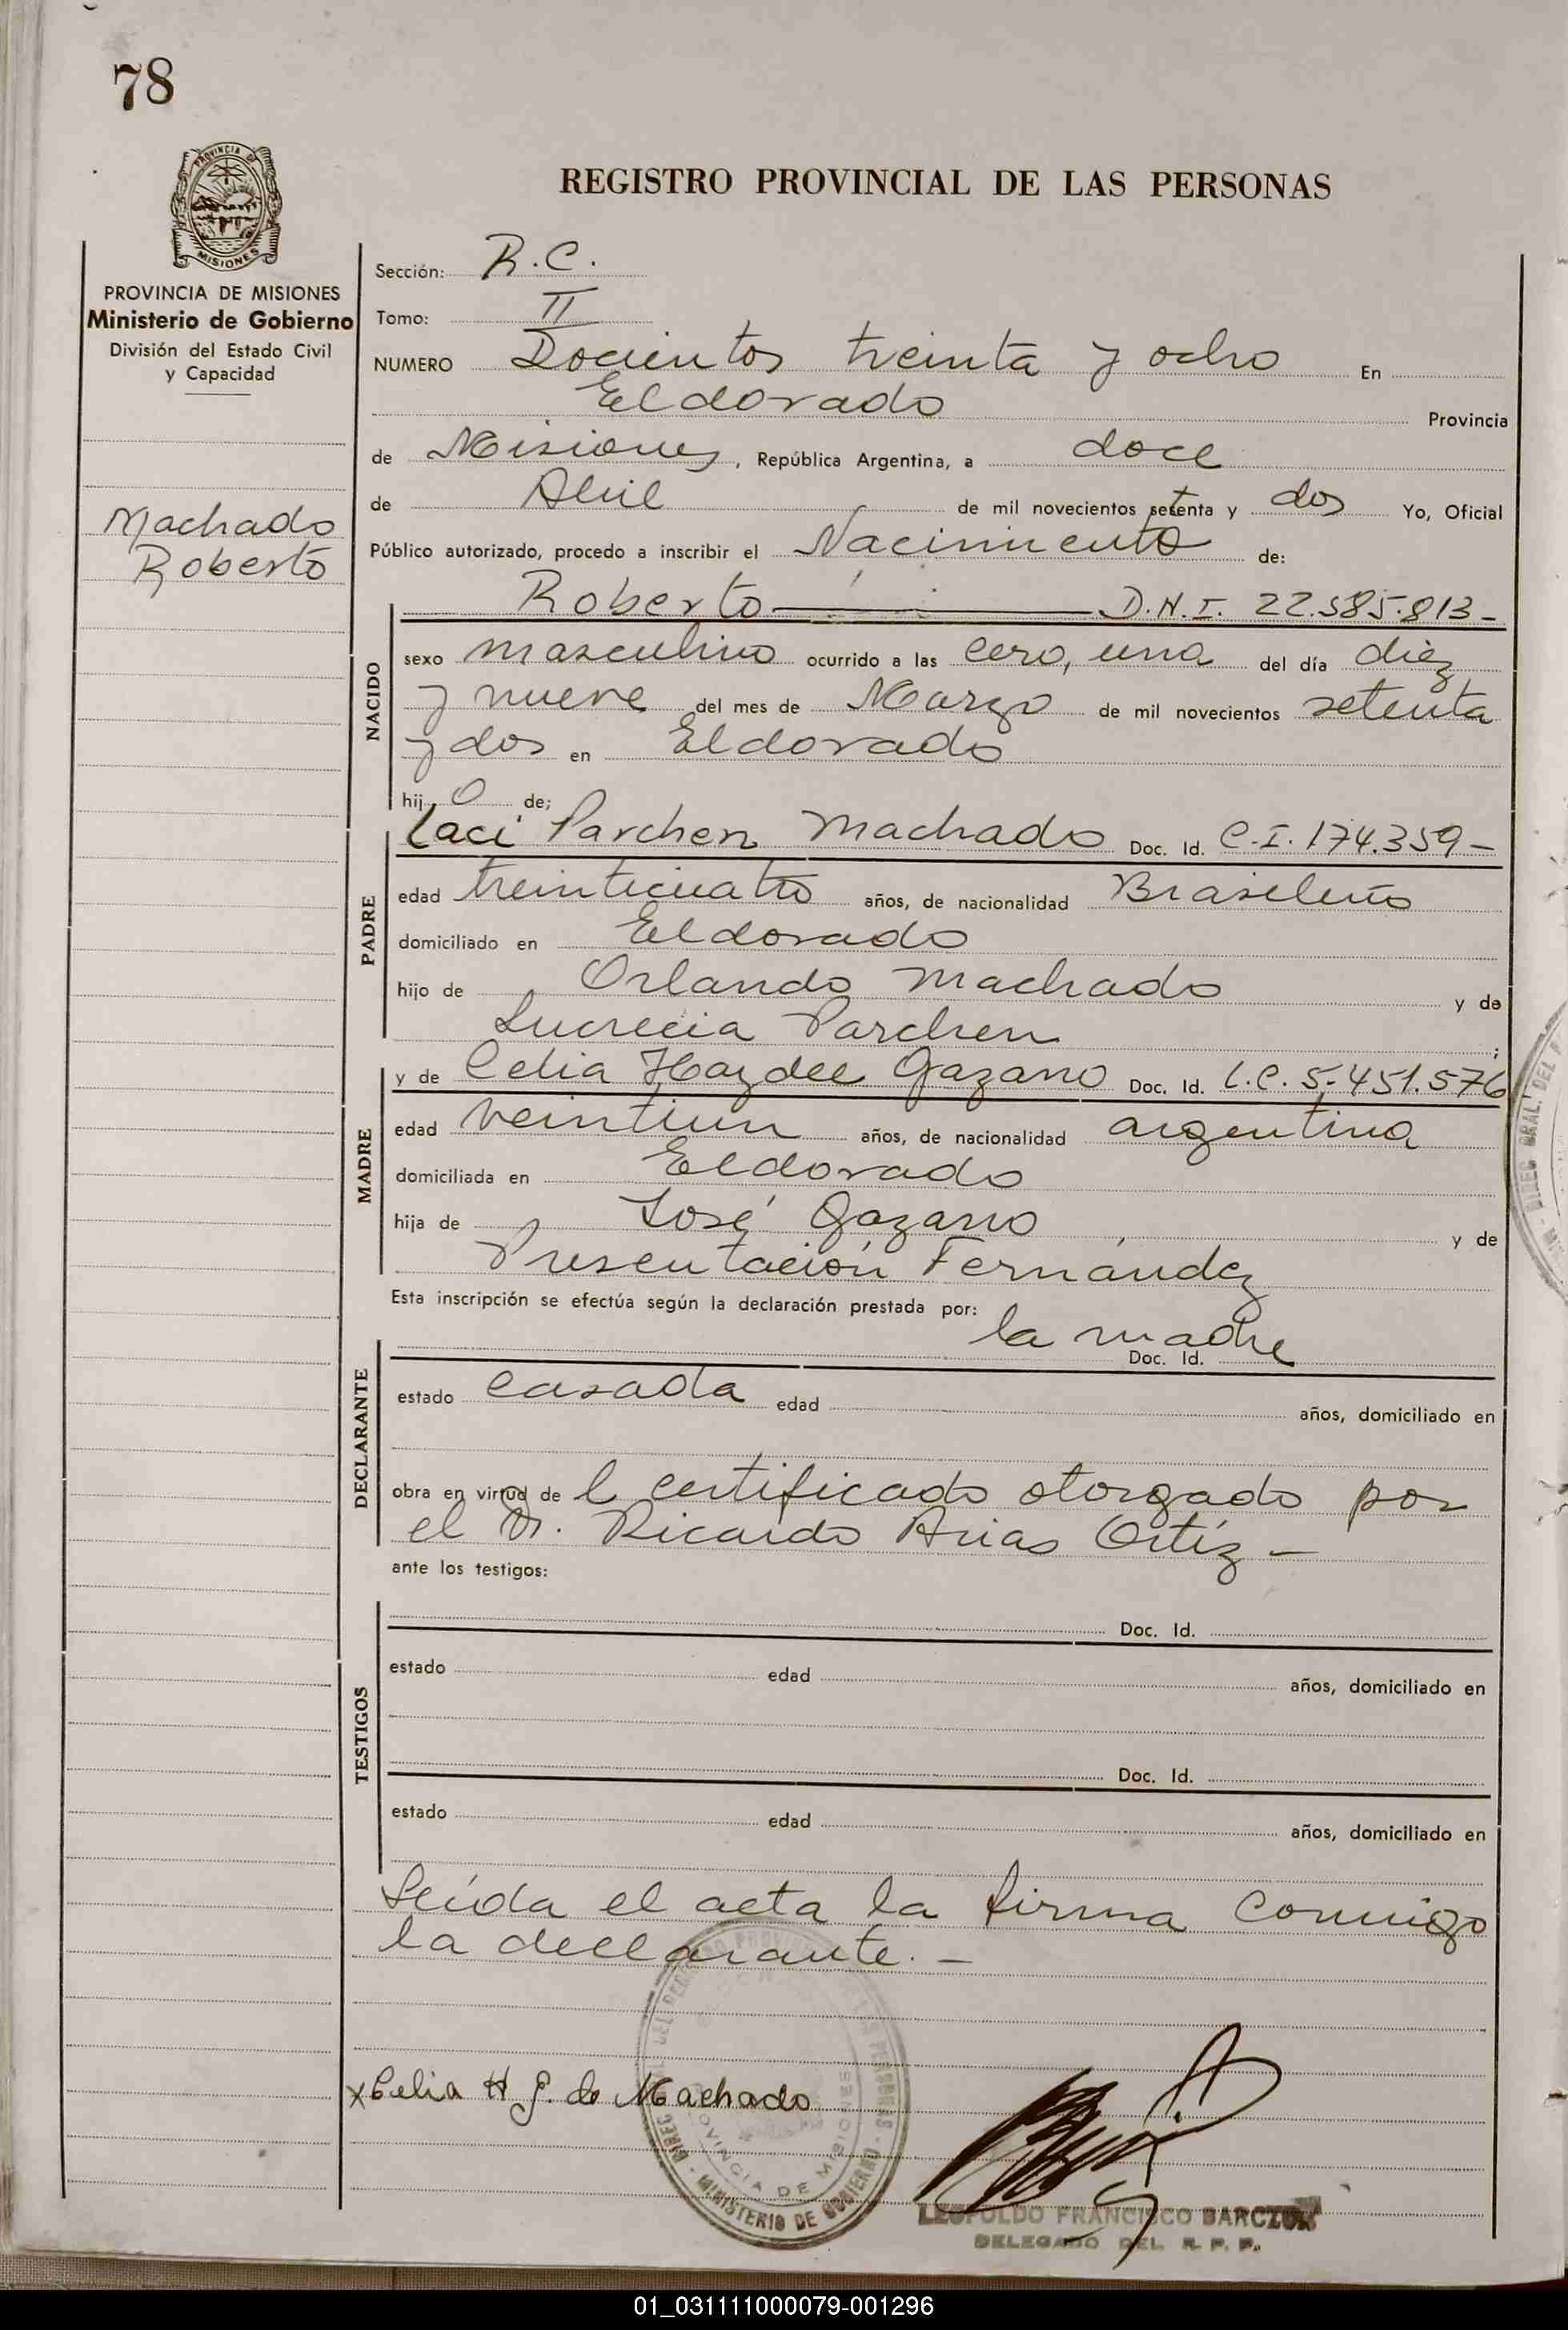 78
PROVINCIA DE
MISIONES
REGISTRO PROVINCIAL DE LAS PERSONAS
PROVINCIA DE MISIONES
Ministerio de Gobierno
División del Estado Civil
y Capacidad
Machado
Roberto
Sección: R.C.
Tomo: II
NUMERO Docientos treinta y ocho En
Eldorado Provincia
de Misiones, República Argentina, a doce
de Abril de mil novecientos setenta y dos Yo, Oficial
Público autorizado, procedo a inscribir el Nacimiento de:
NACIDO
Roberto — D.N.I. 22.585.813-
sexo masculino ocurrido a las cero, una del día diez
y nueve del mes de Marzo de mil novecientos setenta
y dos en Eldorado
hij o de;
PADRE
Laci Parchen Machado Doc. Id. C.I. 174.359-
edad treinticuatro años, de nacionalidad Brasileño
domiciliado en Eldorado
hijo de Orlando Machado y de
Lucrecia Parchen ;
MADRE
y de Celia Haydee Gazano Doc. Id. L.C. 5.451.576
edad veintiun años, de nacionalidad argentina
domiciliada en Eldorado
hija de José Gazano y de
Presentación Fernández
Esta inscripción se efectúa según la declaración prestada por:
la madre
DECLARANTE
Doc. Id.
estado casada edad años, domiciliado en
obra en virtud de l certificado otorgado por
el Dr. Ricardo Arias Ortíz -
ante los testigos:
TESTIGOS
Doc. Id.
estado edad años, domiciliado en
Doc. Id.
estado edad años, domiciliado en
Leída el acta la firma conmigo
la declarante. -
x Celia H G. de Machado
PROVINCIA DE MISIONES
MINISTERIO DE GOBIERNO
LEOPOLDO FRANCISCO
DELEGADO DEL R. P. P.
01_031111000079-001296